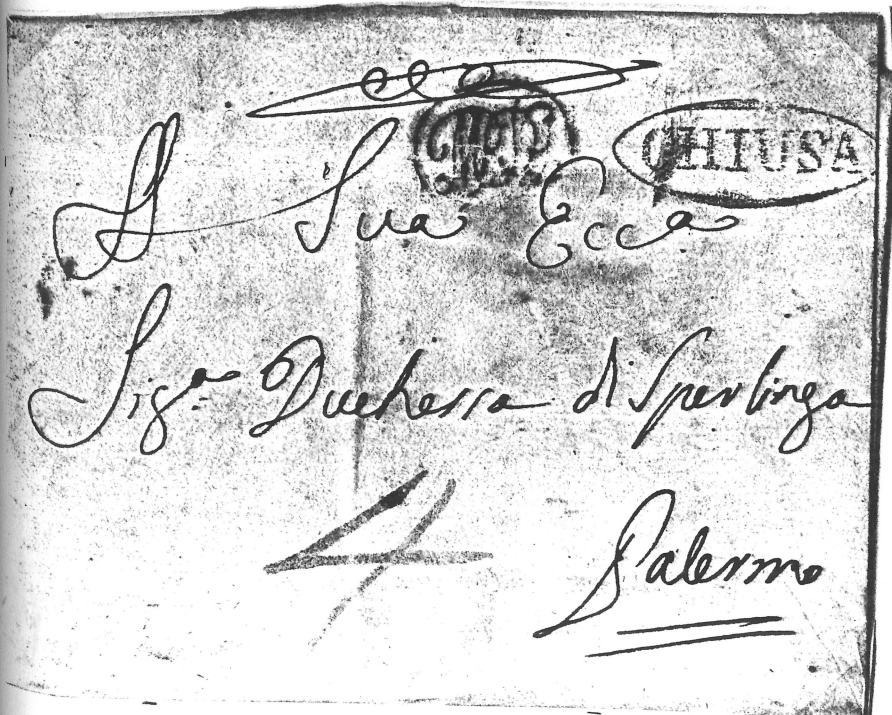 CHIUSA
A Sua Ecca
Sig.ra Duchessa di Sperlinga
4
Palermo